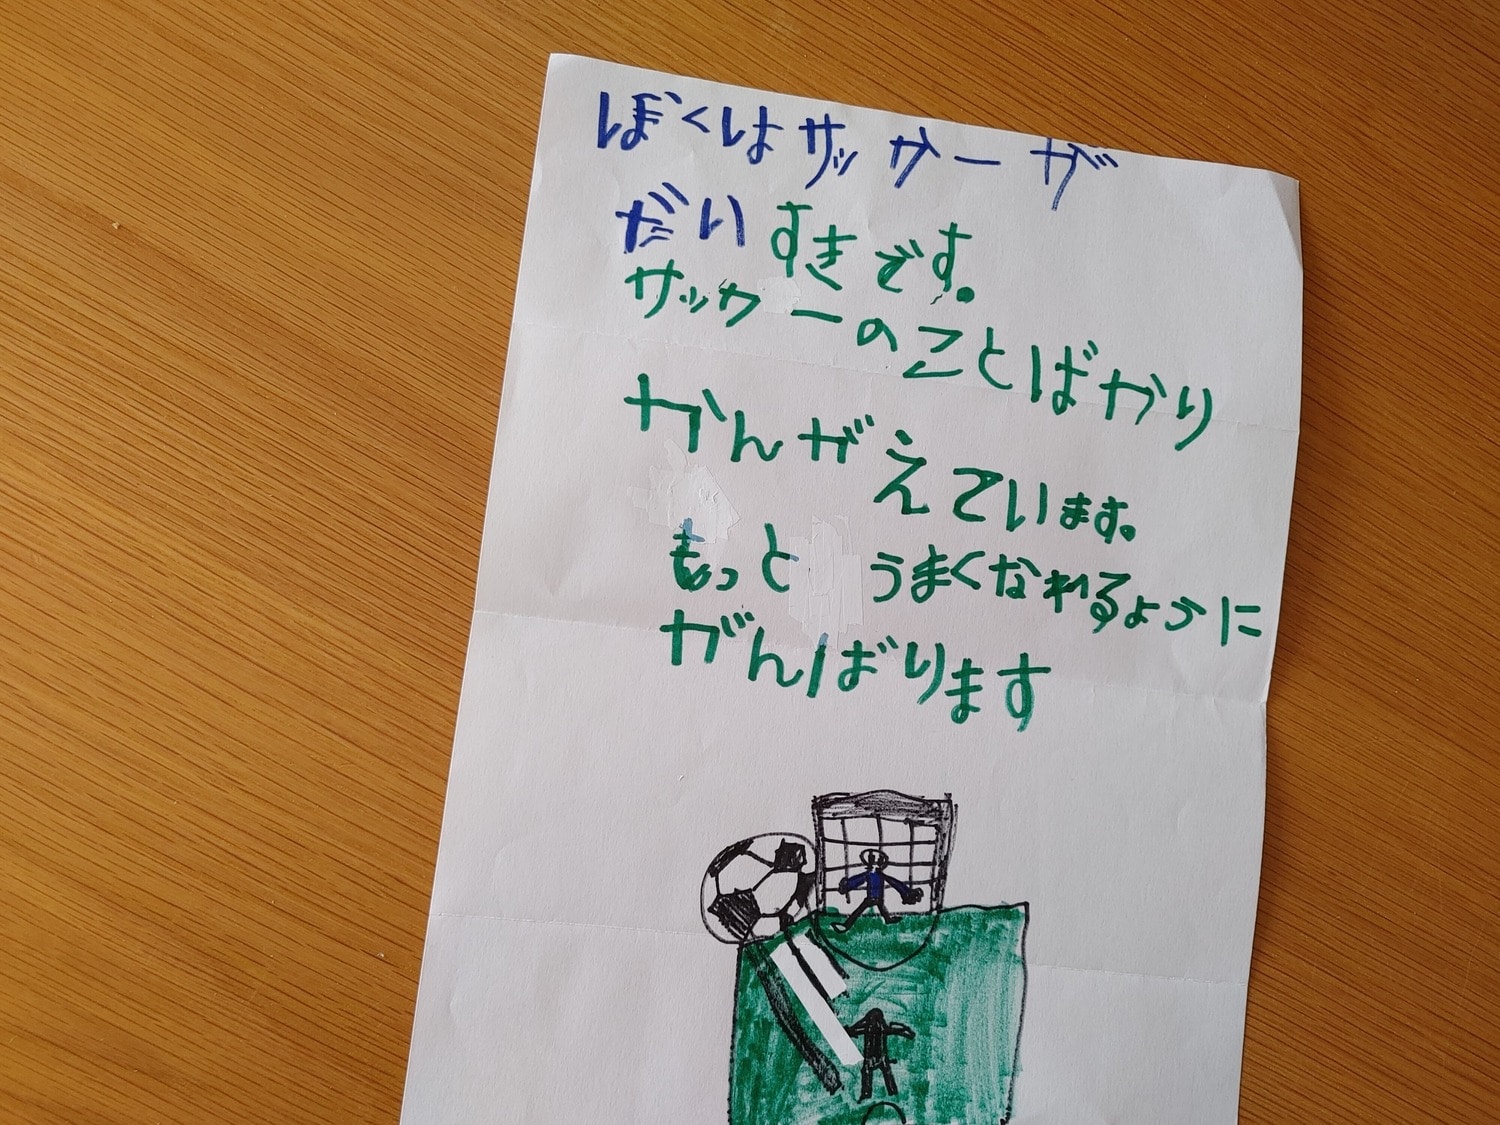 ぼくはサッカーが
だいすきです。
サッカーのことばかり
かんがえています。
もっとうまくなれるように
がんばります